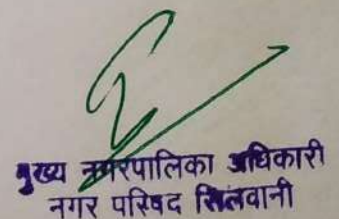 मुख्य नगरपालिका अधिकारी
नगर परिषद सिलवानी